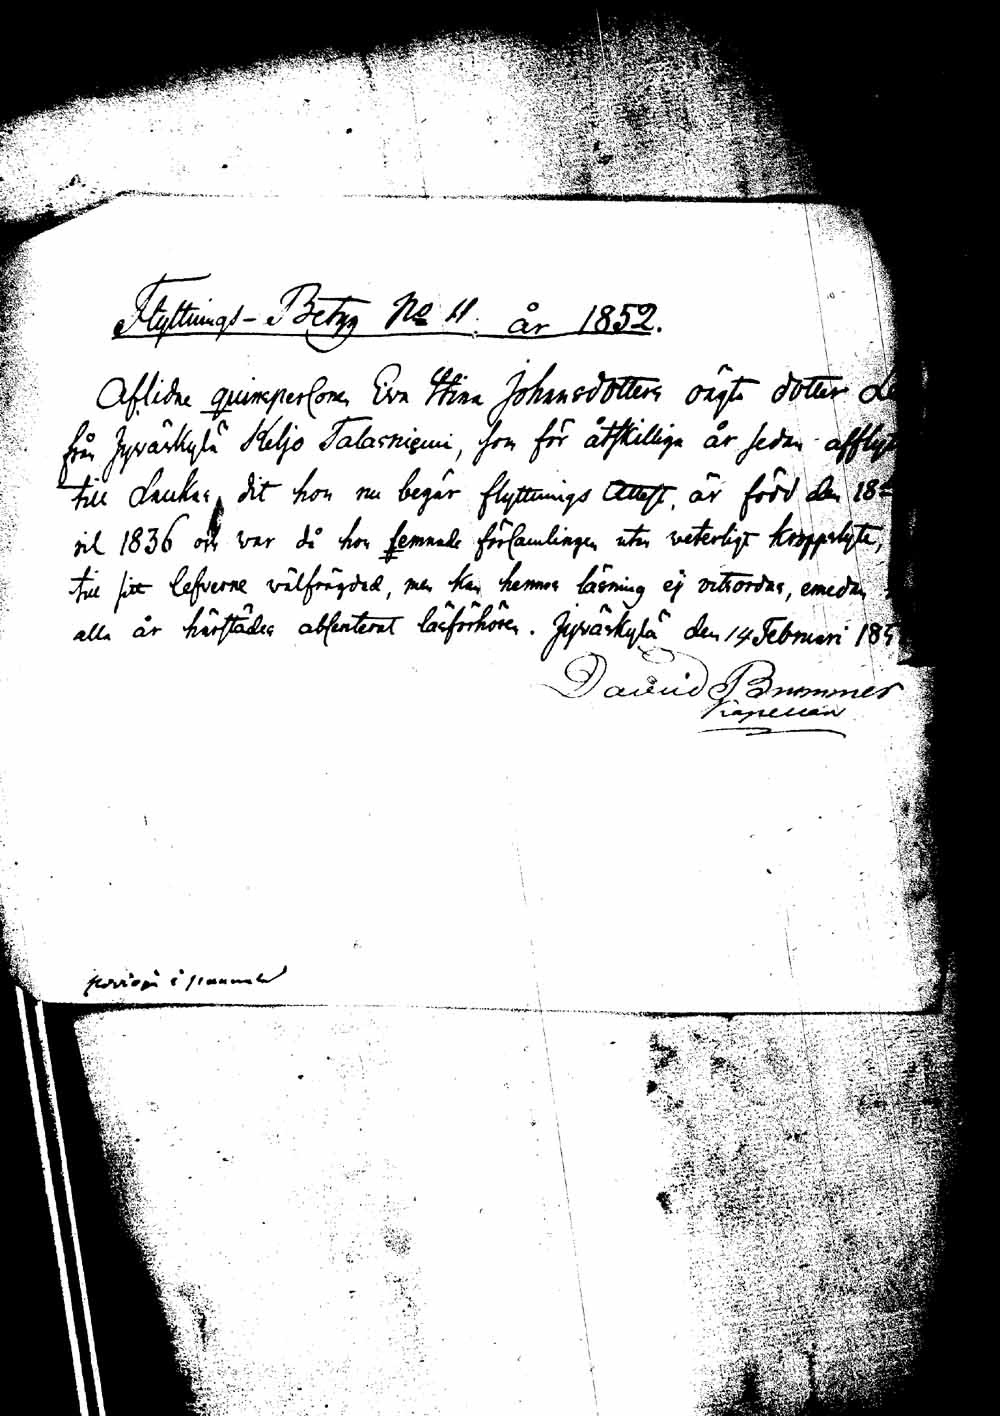 Flyttnings-Betyg No 11. år 1852.
Aflidne quinspersonen Eva Stina Johansdotters oägta dotter
från Jyväskylä Keljo Talasniemi, som för åtskilliga år sedan afflyt
till Laukas, dit hon nu begär flyttnings Attest, är född den 18
ril 1836 och war då hon lemnade församlingen utan veterligt kroppslyte,
till sitt lefverne välfrägdad, men kan hennes läsning ej vitsordas, emedan
alla år härstädes absenterat läsförhören. Jyväskylä den 14 Februari 185
David Brummer
Kapellan